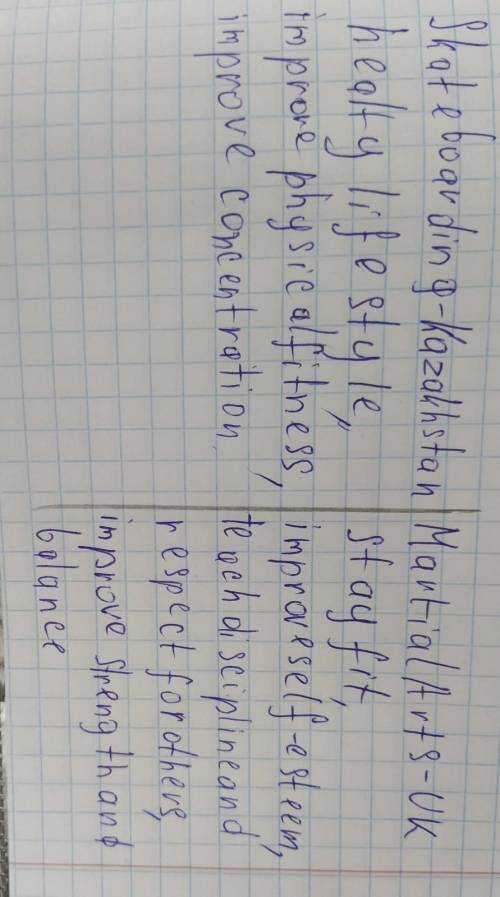 Skateboarding-Kazakhstan
healty lifestyle,
improve physical fitness,
improve concentration
Martial Arts-UK
stay fit,
improve self-esteem,
teach discipline and
respect for others,
improve strength and
balance